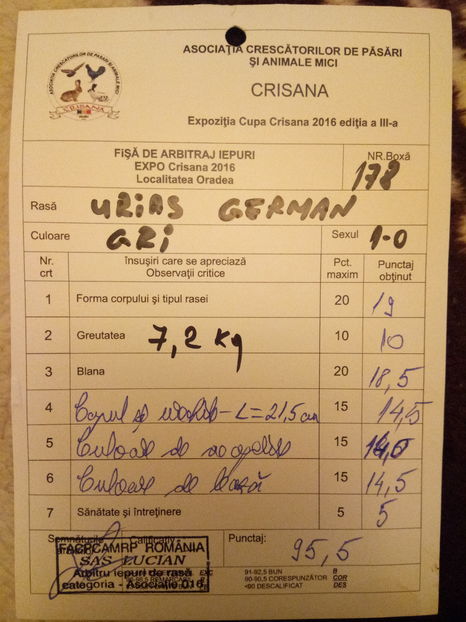 ASOCIAȚIA CRESCĂTORILOR DE PĂSĂRI ȘI ANIMALE MICI
CRISANA
ASOCIAȚIA CRESCĂTORILOR DE PĂSĂRI
ȘI ANIMALE MICI
CRISANA
Expoziția Cupa Crisana 2016 ediția a III-a
FIȘĂ DE ARBITRAJ IEPURI
EXPO Crisana 2016
Localitatea Oradea
NR.Boxă
178
Rasă URIAS GERMAN
Culoare GRI Sexul 1-0
Nr. crt însușiri care se apreciază Observații critice Pct. maxim Punctaj obținut
1 Forma corpului și tipul rasei 20 19
2 Greutatea 7,2 kg 10 10
3 Blana 20 18,5
4 Capul și - L=21,5 cm 15 14,5
5 Culoare de 15 14,5
6 Culoare de bază 15 14,5
7 Sănătate și întreținere 5 5
Semnăturile Calificativ Punctaj: 95,5
FACPCAMRP ROMÂNIA
SAS LUCIAN
Arbitru iepuri de rasă
categoria - Asociație 016
91-92,5 BUN B
90-90,5 CORESPUNZĂTOR COR
<90 DESCALIFICAT DES